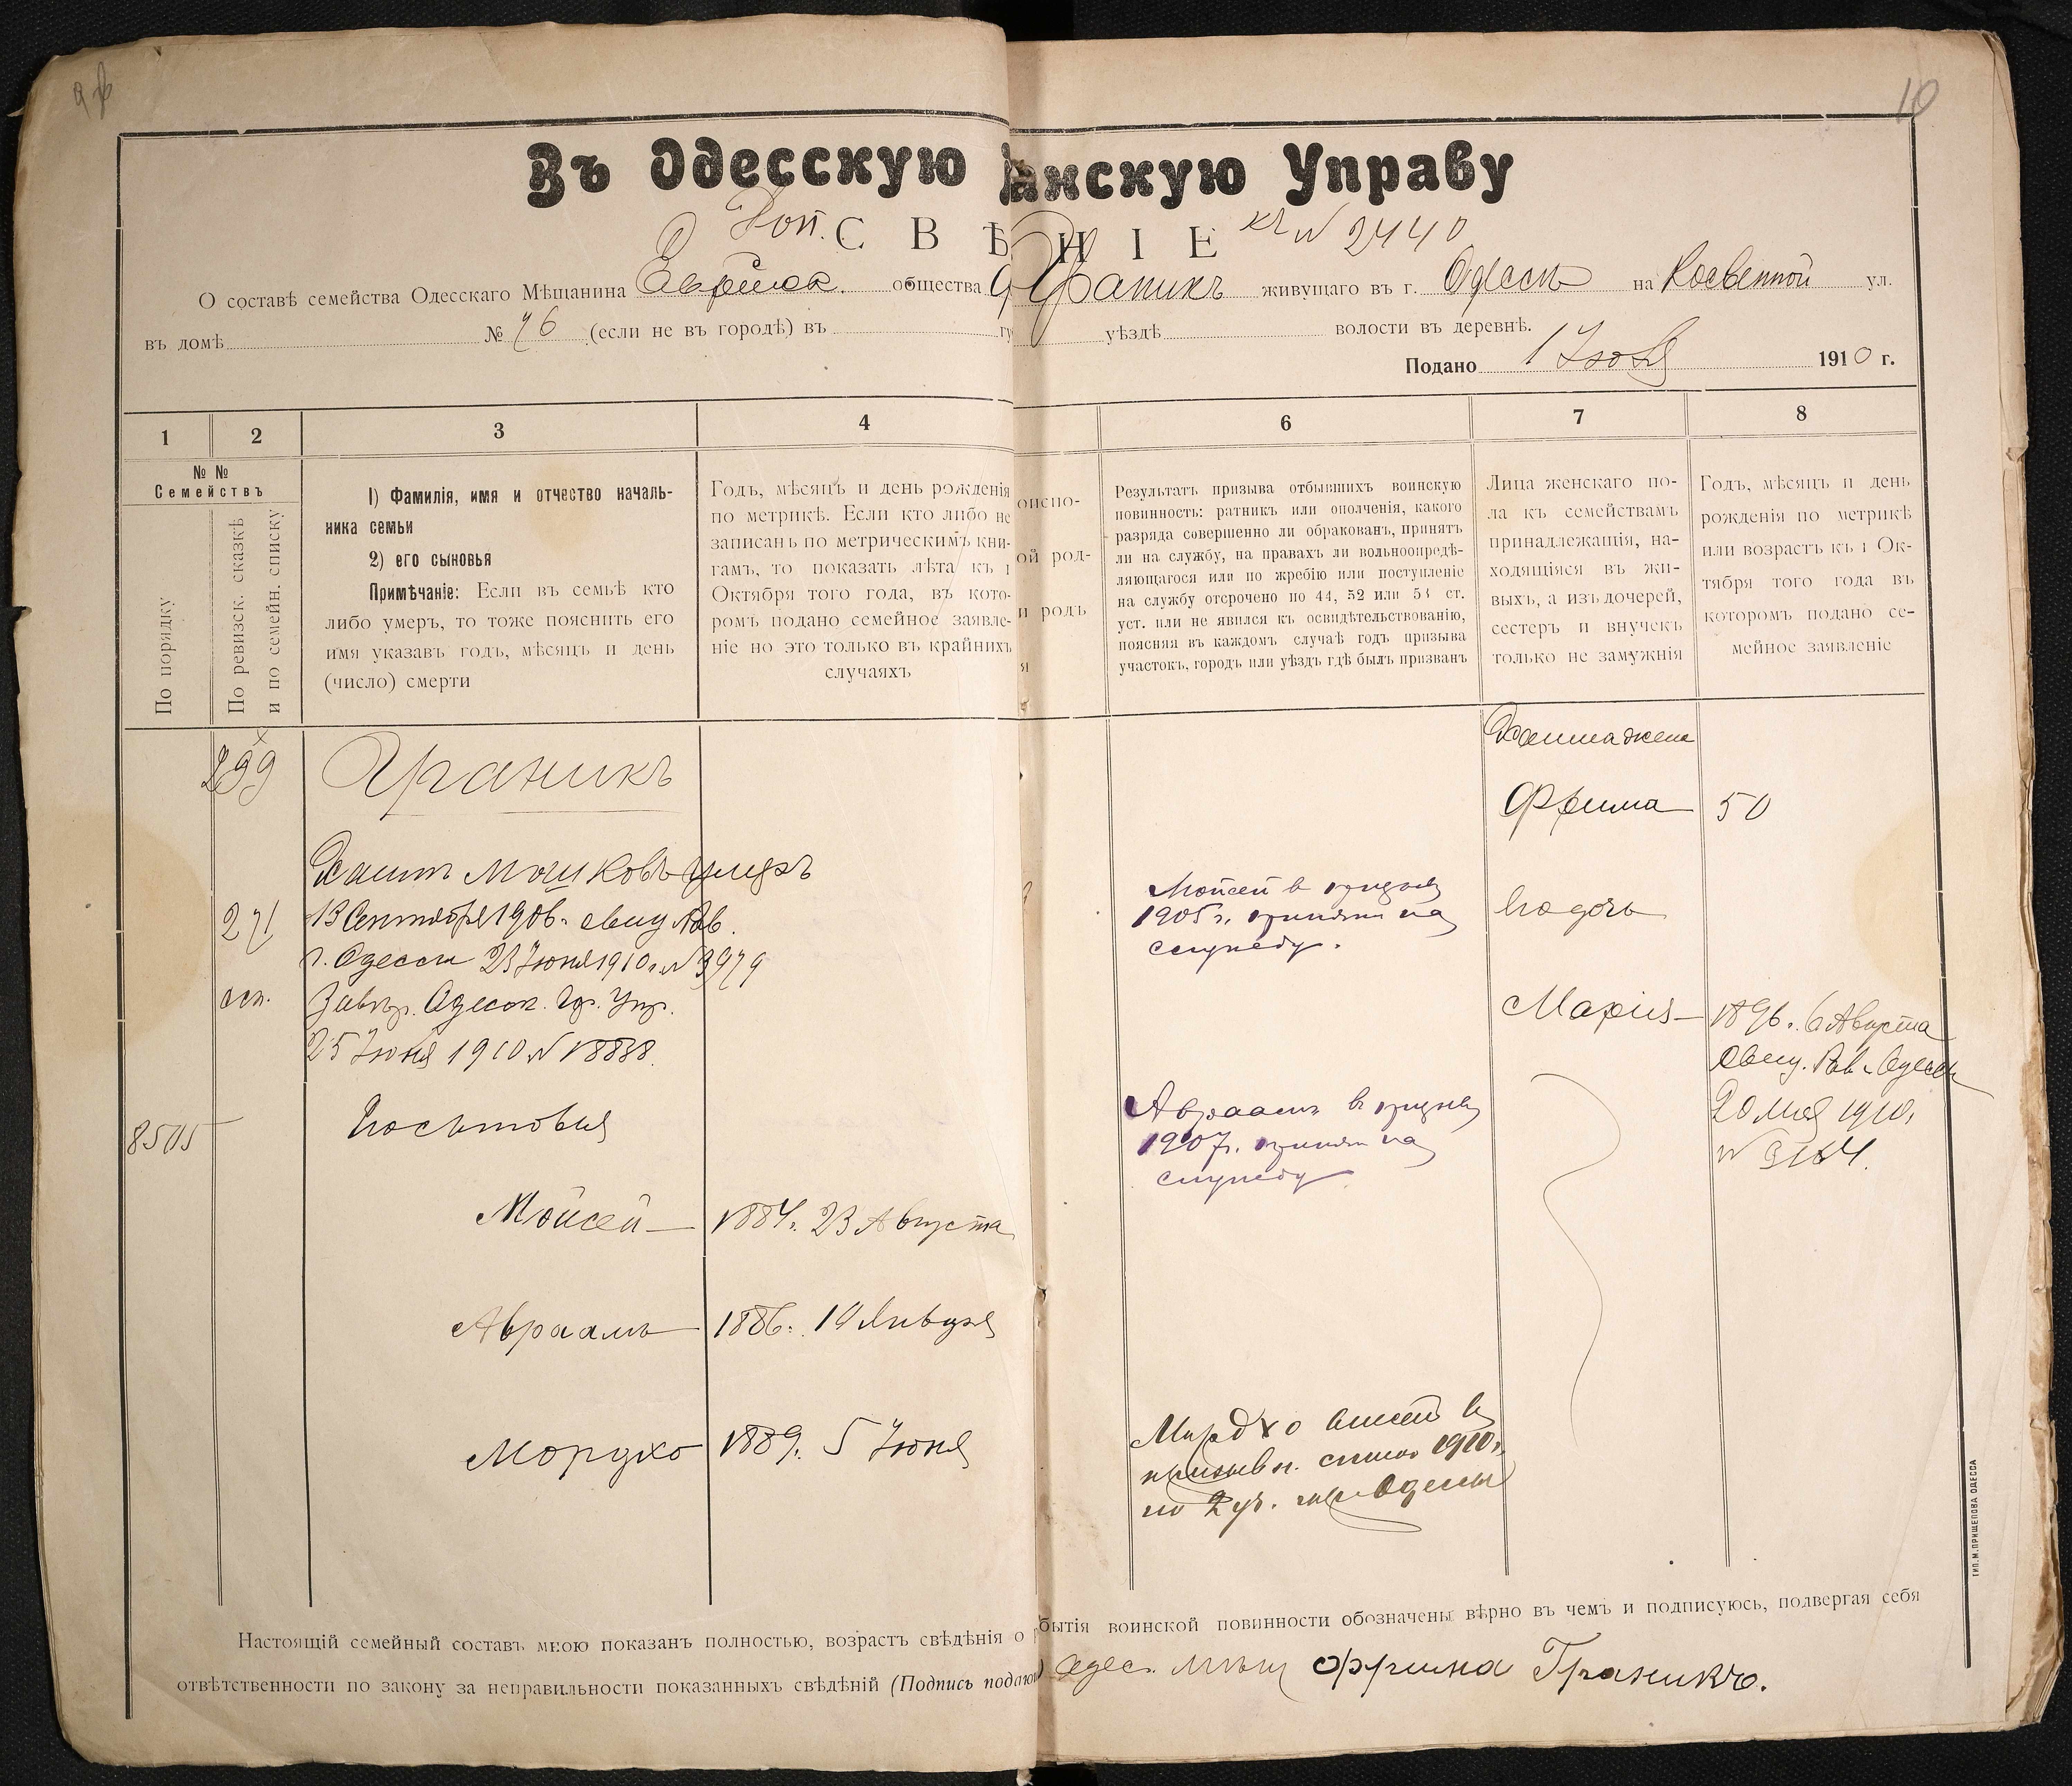 10
Въ Одесскую анскую Управу
Доп. къ № 2440
С В Ѣ Н І Е
О составѣ семейства Одесскаго Мѣщанина Еврейск. общества Граникъ живущаго въ г. Одессѣ на Косвенной ул.
въ домѣ № 76 (если не въ городѣ) въ гу уѣздѣ волости въ деревнѣ.
Подано 1 Іюля 1910 г.
1 2 3 4 6 7 8
№ №
Семействъ
По порядку
По ревизск. сказкѣ
и по семейн. списку
1) Фамилія, имя и отчество началь-
ника семьи
2) его сыновья
Примѣчаніе: Если въ семьѣ кто
либо умеръ, то тоже пояснить его
имя указавъ годъ, мѣсяцъ и день
(число) смерти
Годъ, мѣсяцъ и день рожденія
по метрикѣ. Если кто либо не
записанъ по метрическимъ кни-
гамъ, то показать лѣта къ 1
Октября того года, въ кото-
ромъ подано семейное заявле-
ніе но это только въ крайнихъ
случаяхъ
оисно-
ой род-
и родъ
я
Результатъ призыва отбывшихъ воинскую
повинность: ратникъ или ополченія, какого
разряда совершенно ли обракованъ, принятъ
ли на службу, на правахъ ли вольноопредѣ-
ляющагося или по жребію или поступленіе
на службу отсрочено по 44, 52 или 53 ст.
уст. или не явился къ освидѣтельствованію,
поясняя въ каждомъ случаѣ годъ призыва
участокъ, городъ или уѣздъ гдѣ былъ призванъ
Лица женскаго по-
ла къ семействамъ
принадлежащія, на-
ходящіяся въ жи-
выхъ, а изъ дочерей,
сестеръ и внучекъ
только не замужнія
Годъ, мѣсяцъ и день
рожденія по метрикѣ
или возрастъ къ 1 Ок-
тября того года въ
которомъ подано се-
мейное заявленіе
299
Граникъ
271
Хаимъ Мошковъ умеръ
13 Сентября 1906 г. свид. Рав.
г. Одессы 23 Іюня 1910 г. № 3979
Завѣр. Одесск. Гор. Упр.
25 Іюня 1910 № 18838.
8505
Моисей 1884 г. 23 Августа
Авраамъ 1886 г. 10 Января
Мордко 1889 г. 5 Іюня
Моисей въ призывъ
1905 г. принятъ на
службу.
Авраамъ въ призывъ
1907 г. принятъ на
службу
Мордко внесенъ въ
призывн. списокъ 1910 г.
по 2 уч. гор. Одессы
Хаима жена
Фрима 50
его дочь
Марія 1896 г. 6 Августа
свид. Рав. Одессы
20 Мая 1910 г.
№ 3164.
Настоящій семейный составъ мною показанъ полностью, возрастъ свѣдѣнія о бытія воинской повинности обозначены вѣрно въ чемъ и подписуюсь, подвергая себя
отвѣтственности по закону за неправильности показанныхъ свѣдѣній (Подпись подаю Одес. мѣщ Фрима Граникъ.
ТИП. М. ПРИЩЕПОВА ОДЕССА